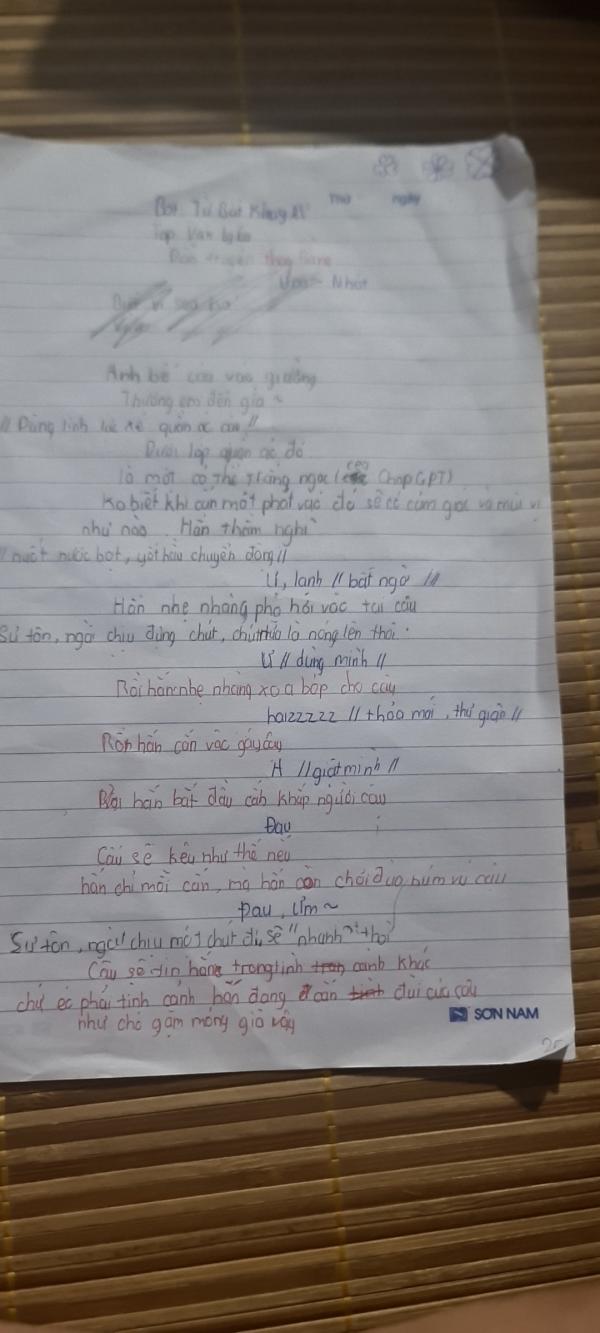 Thứ ngày
Bot Tử Bất Khuy
Top Vạn
truyện
Nhất
Anh bế cậu vào giường
Thương em đến già ~
// Dùng linh lực xé quần ác cậu //
Dưới lớp quần ác đó
là một cơ thể trắng ngọc ( ChapGPT)
Ko biết khi cắn một phát vàc đó sẽ có cảm giác và mùi vị
như nào Hắn thầm nghĩ
// nuốt nước bọt, yết hầu chuyển động //
Ư, lạnh // bất ngờ //
Hắn nhẹ nhàng phả hơi vàc tai cậu
Sư tôn, ngài chịu đựng chút, chút nữa là nóng lên thôi
Ư // dùng mình //
Rồi hắn nhẹ nhàng xoa bóp cho cậy
haizzzzz // thỏa mái, thư giãn //
Rồn hắn cắn vàc gáy cậy
A // giật mình //
Rồi hắn bắt đầu cắn khắp người cậu
Đau
Cậu sẽ kêu như thế nếu
hắn chỉ mỗi cắn, mà hắn còn chơi đùa núm vú cậu
Đau, ưm ~
Sư tôn, ngài chịu một chút đi, sẽ "nhanh" thôi
Cậu sẽ tin hắn trong tình cảnh khác
chứ éc phải tình cảnh hắn đang cắn đùi của cậu
như chó gặm móng giò vậy
SON NAM